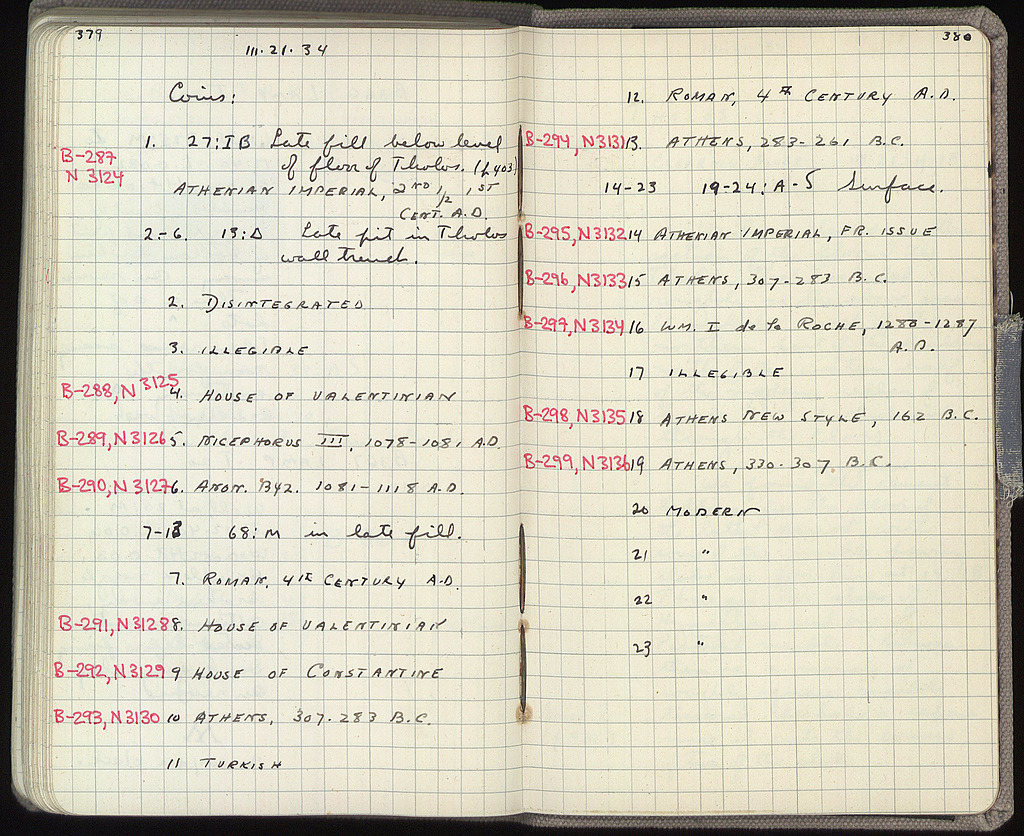 379
III·21·34
Coins:
B-287
N 3124
1. 27:IB Late fill below level
of floor of Tholos. (p. 403)
ATHENIAN IMPERIAL, 2ND 1/2, 1ST
CENT. A.D.
2.-6. 13:Δ Late pit in Tholos
wall trench.
2. DISINTEGRATED
3. ILLEGIBLE
B-288, N 3125 4. HOUSE OF VALENTINIAN
B-289, N 3126 5. NICEPHORUS III, 1078-1081 A.D.
B-290, N 3127 6. ANON. BYZ. 1081-1118 A.D.
7-13 68:M in late fill.
7. ROMAN, 4TH CENTURY A.D.
B-291, N 3128 8. HOUSE OF VALENTINIAN
B-292, N 3129 9 HOUSE OF CONSTANTINE
B-293, N 3130 10 ATHENS, 307-283 B.C.
11 TURKISH
380
12. ROMAN, 4TH CENTURY A.D.
B-294, N 3131 13. ATHENS, 283-261 B.C.
14-23 19-24:A-5 Surface.
B-295, N 3132 14 ATHENIAN IMPERIAL, FR. ISSUE
B-296, N 3133 15 ATHENS, 307-283 B.C.
B-297, N 3134 16 WM. I de la ROCHE, 1280-1287
A.D.
17 ILLEGIBLE
B-298, N 3135 18 ATHENS NEW STYLE, 162 B.C.
B-299, N 3136 19 ATHENS, 330-307 B.C.
20 MODERN
21 "
22 "
23 "